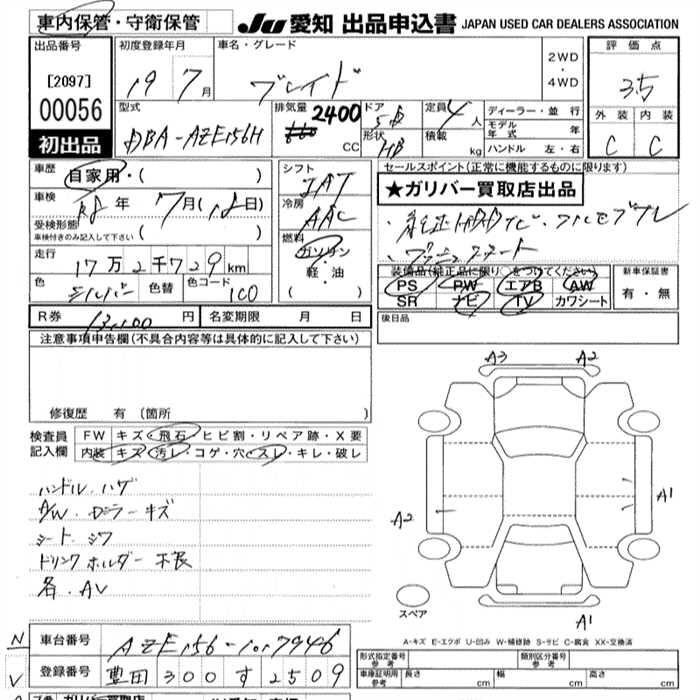 車内保管・守衛保管
JU 愛知 出品申込書 JAPAN USED CAR DEALERS ASSOCIATION
出品番号
[2097]
00056
初出品
初度登録年月
19 7月
車名・グレード
ブレイド
2WD
・
4WD
評価点
3.5
外装 内装
C C
型式
DBA-AZE156H
排気量
2400
CC
ドア
5D
形状
HB
定員
4人
積載
kg
ディーラー・並行
モデル年式 年
ハンドル 左・右
車歴
自家用・( )
車検
年 7月( 日)
受検形態
車検付きのみ記入して下さい ( )
走行
17万2千729km
色
シルバー
色替
色コード
1C0
シフト
IAT
冷房
AAC
燃料
ガソリン
・
軽・油
( )
セールスポイント(正常に機能するものに限ります)
★ガリバー買取店出品
・純正HDDナビ・フルセグTV
・プッシュスタート
装備品(純正品に限り○をつけてください)
PS PW エアB AW
SR ナビ TV カワシート
新車保証書
有・無
R券 13,100円
名変期限 月 日
後日品
注意事項申告欄(不具合内容等は具体的に記入して下さい)
修復歴 有 (箇所 )
検査員
記入欄
FW キズ・飛石・ヒビ割・リペア跡・X要
内装 キズ・汚レ・コゲ・穴・スレ・キレ・破レ
ハンドル.ハゲ
A/W.カラーキズ
シート.シワ
ドリンクホルダー不良
各.AV
A3 A2
A2
A1
A1
スペア
A-キズ E-エクボ U-凹み W-補修跡 S-サビ C-腐食 XX-交換済
車台番号 AZE156-1017946
登録番号 豊田300す2509
形式指定番号
参考
類別区分番号
参考
車庫証明用
参考
長さ cm 幅 cm 高さ cm
N
V